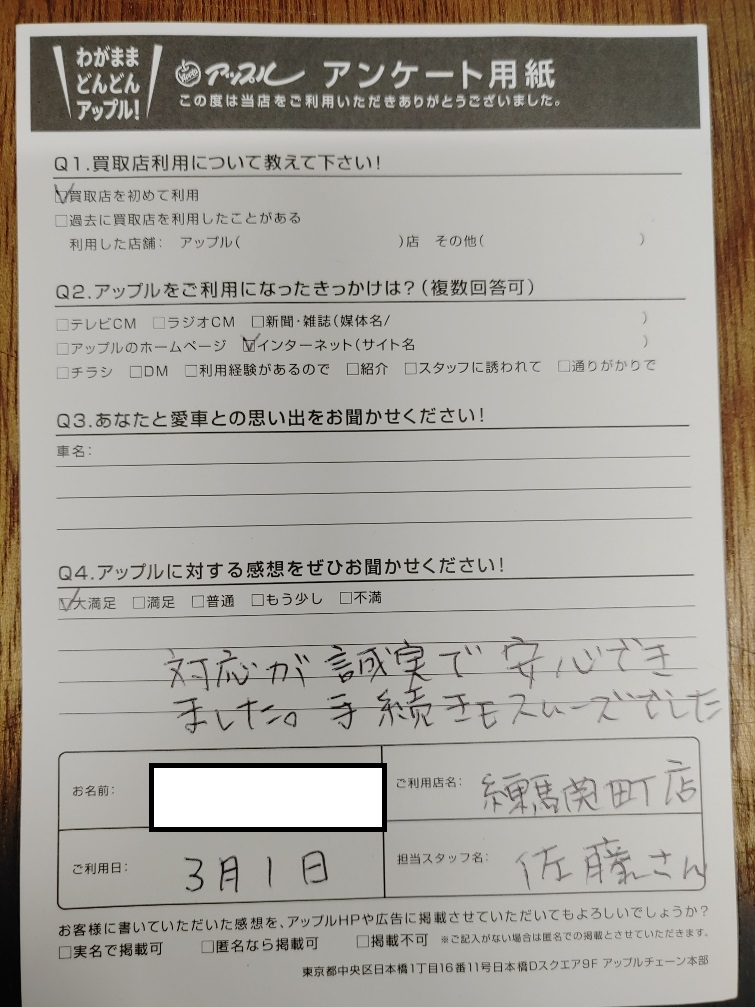 わがまま
どんどん
アップル!
アップル アンケート用紙
この度は当店をご利用いただきありがとうございました。
Q1.買取店利用について教えて下さい!
☑買取店を初めて利用
□過去に買取店を利用したことがある
利用した店舗: アップル( )店 その他( )
Q2.アップルをご利用になったきっかけは?(複数回答可)
□テレビCM □ラジオCM □新聞・雑誌(媒体名/ )
□アップルのホームページ ☑インターネット(サイト名 )
□チラシ □DM □利用経験があるので □紹介 □スタッフに誘われて □通りがかりで
Q3.あなたと愛車との思い出をお聞かせください!
車名:
Q4.アップルに対する感想をぜひお聞かせください!
☑大満足 □満足 □普通 □もう少し □不満
対応が誠実で安心でき
ました。手続きもスムーズでした
お名前:
ご利用店名: 練馬関町店
ご利用日: 3月1日
担当スタッフ名: 佐藤さん
お客様に書いていただいた感想を、アップルHPや広告に掲載させていただいてもよろしいでしょうか?
□実名で掲載可 □匿名なら掲載可 □掲載不可 ※ご記入がない場合は匿名での掲載とさせていただきます。
東京都中央区日本橋1丁目16番11号日本橋Dスクエア9F アップルチェーン本部